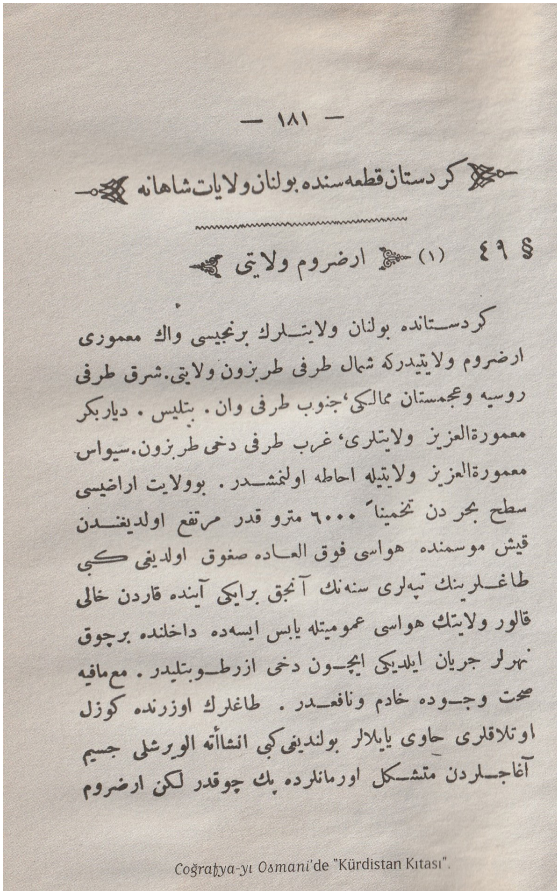 — ١٨١ —
كردستان قطعه سنده بولنان ولايات شاهانه
§ ٤٩ (١) ارضروم ولايتى
كردستانده بولنان ولايتلرك برنجيسى واك معمورى
ارضروم ولايتيدركه شمال طرفى طربزون ولايتى. شرق طرفى
روسيه وعجمستان ممالكى، جنوب طرفى وان. بتليس. دياربكر
معمورةالعزيز ولايتلرى، غرب طرفى دخى طربزون. سيواس
معمورةالعزيز ولايتيله احاطه اولنمشدر. بوولايت اراضيسى
سطح بحر دن تخميناً ٦٠٠٠ مترو قدر مرتفع اولديغندن
قيش موسمنده هواسى فوق العاده صغوق اولديغى كبى
طاغلرينك تپه لرى سنه نك آنجق برايكى آينده قاردن خالى
قالور ولايتك هواسى عموميتله يابس ايسه ده داخلنده برچوق
نهرلر جريان ايلديكى ايچون دخى ازرطوبتليدر. مع مافيه
صحت وجوده خادم ونافعدر. طاغلرك اوزرنده كوزل
اوتلاقلرى حاوى يايلالر بولنديغى كبى انشاأته الويرشلى جسيم
آغاجلردن متشكل اورمانلرده پك چوقدر لكن ارضروم
Coğrafya-yı Osmani'de "Kürdistan Kıtası".